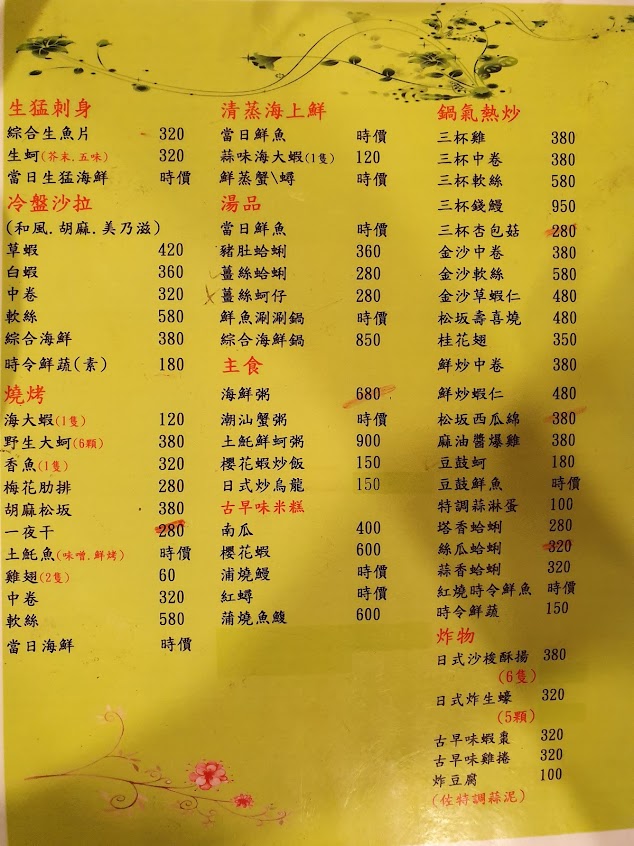 生猛刺身
綜合生魚片 320
生蚵(芥末.五味) 320
當日生猛海鮮 時價
冷盤沙拉
(和風.胡麻.美乃滋)
草蝦 420
白蝦 360
中卷 320
軟絲 580
綜合海鮮 380
時令鮮蔬(素) 180
燒烤
海大蝦(1隻) 120
野生大蚵(6顆) 380
香魚(1隻) 320
梅花肋排 280
胡麻松坂 380
一夜干 280
土魠魚(味噌.鮮烤) 時價
雞翅(2隻) 60
中卷 320
軟絲 580
當日海鮮 時價
清蒸海上鮮
當日鮮魚 時價
蒜味海大蝦(1隻) 120
鮮蒸蟹\蟳 時價
湯品
當日鮮魚 時價
豬肚蛤蜊 360
薑絲蛤蜊 280
薑絲蚵仔 280
鮮魚涮涮鍋 時價
綜合海鮮鍋 850
主食
海鮮粥 680
潮汕蟹粥 時價
土魠鮮蚵粥 900
櫻花蝦炒飯 150
日式炒烏龍 150
古早味米糕
南瓜 400
櫻花蝦 600
浦燒鰻 時價
紅蟳 時價
蒲燒魚鰻 600
鍋氣熱炒
三杯雞 380
三杯中卷 380
三杯軟絲 580
三杯錢鰻 950
三杯杏包菇 280
金沙中卷 380
金沙軟絲 580
金沙草蝦仁 480
松坂壽喜燒 480
桂花翅 350
鮮炒中卷 380
鮮炒蝦仁 480
松坂西瓜綿 380
麻油醬爆雞 380
豆鼓蚵 180
豆鼓鮮魚 時價
特調蒜淋蛋 100
塔香蛤蜊 280
絲瓜蛤蜊 320
蒜香蛤蜊 320
紅燒時令鮮魚 時價
時令鮮蔬 150
炸物
日式沙梭酥揚 380
(6隻)
日式炸生蠔 320
(5顆)
古早味蝦棗 320
古早味雞捲 320
炸豆腐 100
(佐特調蒜泥)